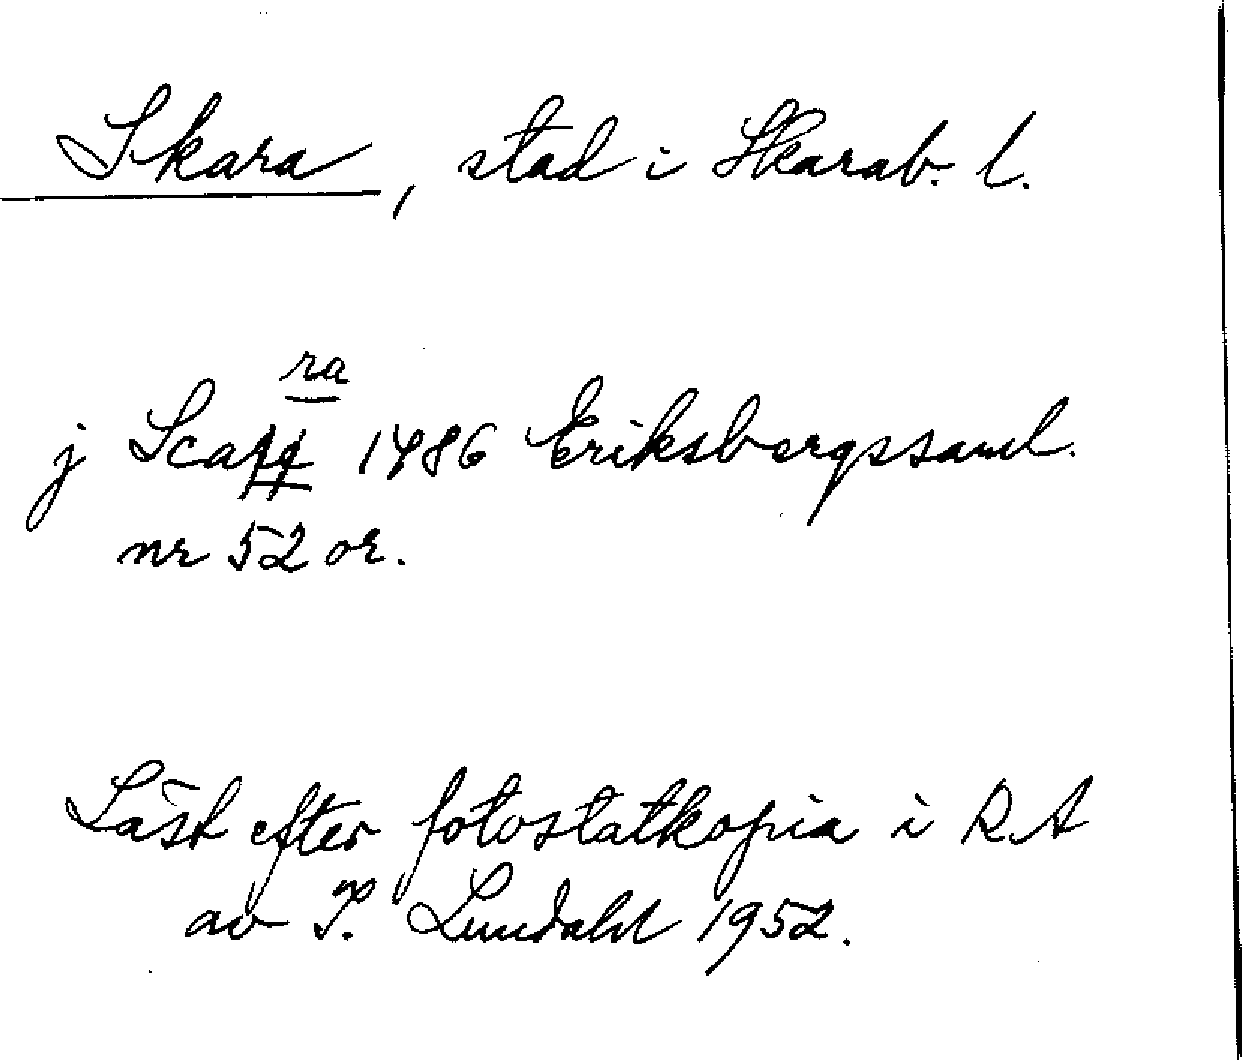 Skara, stad i Skarab. l.
ra
j Scaff 1486 Eriksbergssaml.
nr 52 or.
Läst efter fotostatkopia i RA
av I. Lundahl 1952.